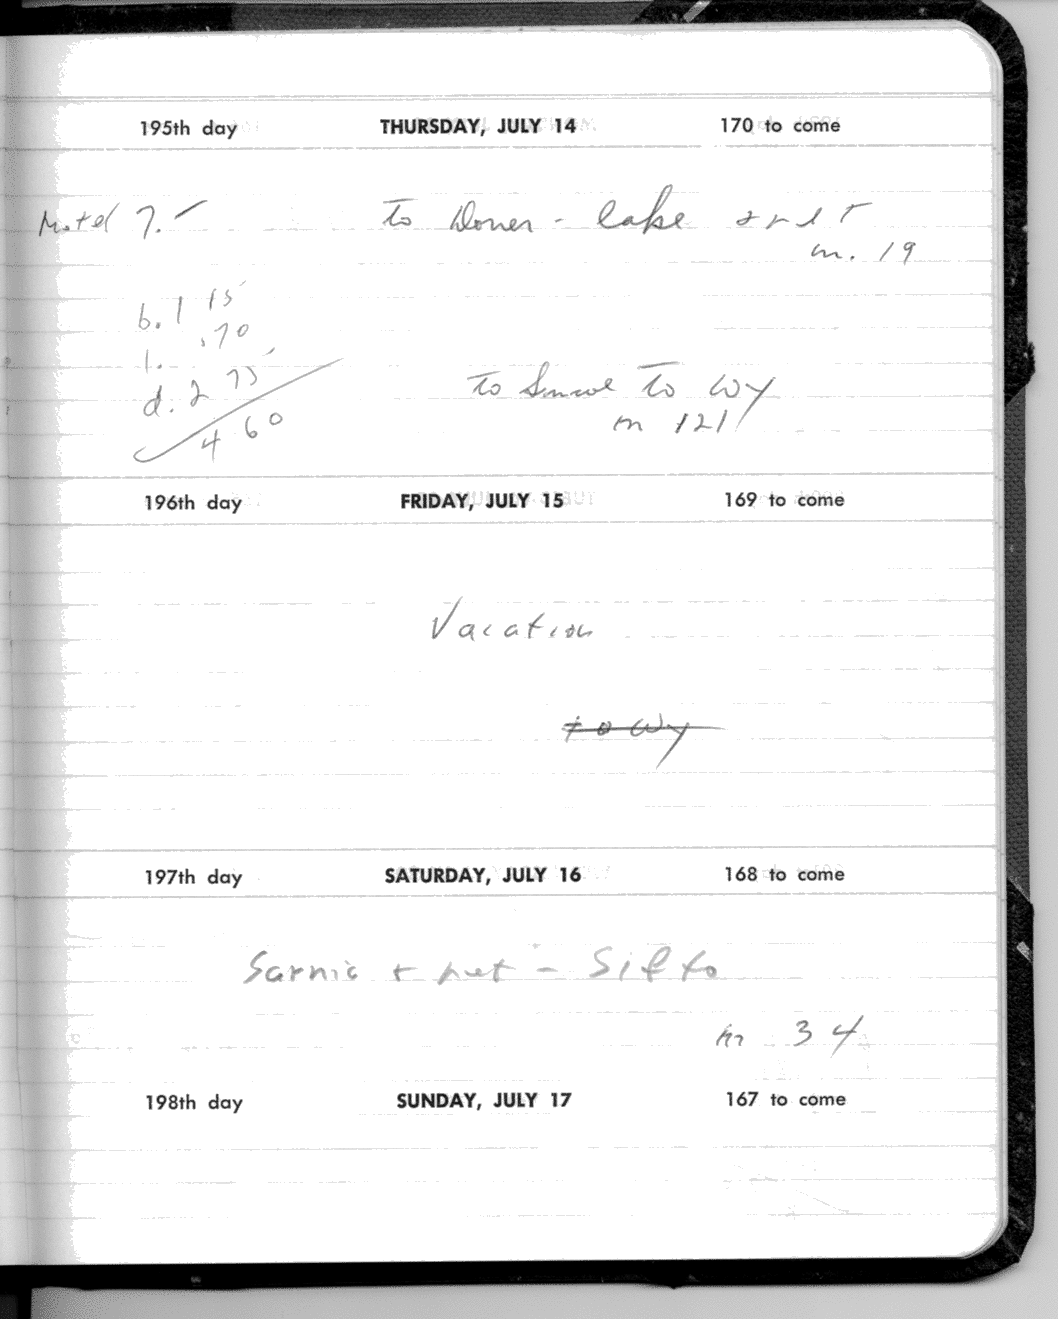 195th day THURSDAY, JULY 14 170 to come
Motel 7.- to Dover - lake
m. 19
b. 1 15
.70
l.
d. 2 75
to to Wy
m 121
4 60
196th day FRIDAY, JULY 15 169 to come
Vacation
to Wy
197th day SATURDAY, JULY 16 168 to come
Sarnia + ret - Sifto
m 34
198th day SUNDAY, JULY 17 167 to come